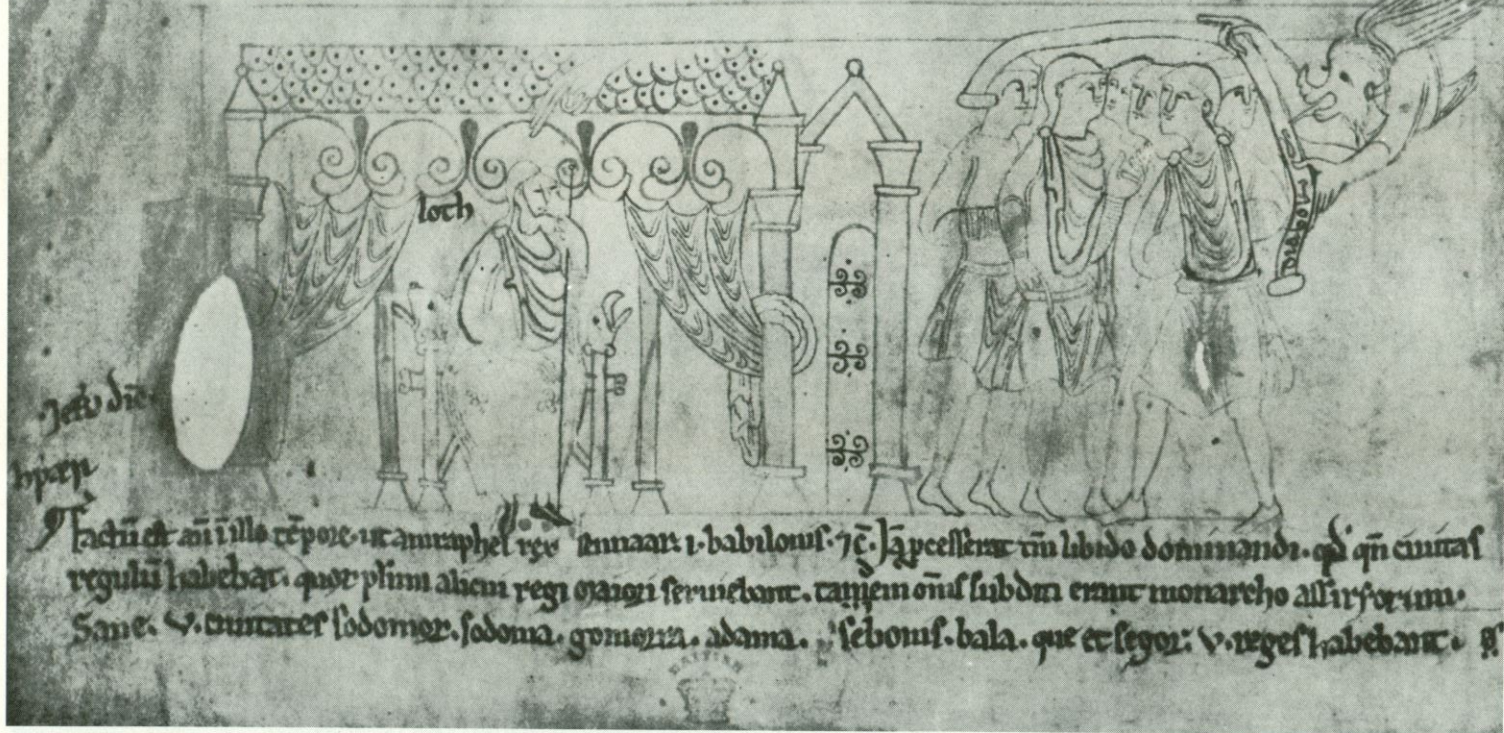 loch
diabolus
Factū est aū i illo tēpore. ut amraphel rex sennaar .i. babilonis. ⁊c̄. Jā pcesserat tm̄ libido dominandi. qd̓ qn̄ ciuitas
regulū habebat. quor plīmi alicui regi maiori seruiebant. tamen om̄s subditi erant monarcho assiriorum.
Sane. v. ciuitates sodomor. sodoma. gomorra. adama. sebonis. bala. que et segor: v. reges habebant.
BRITISH